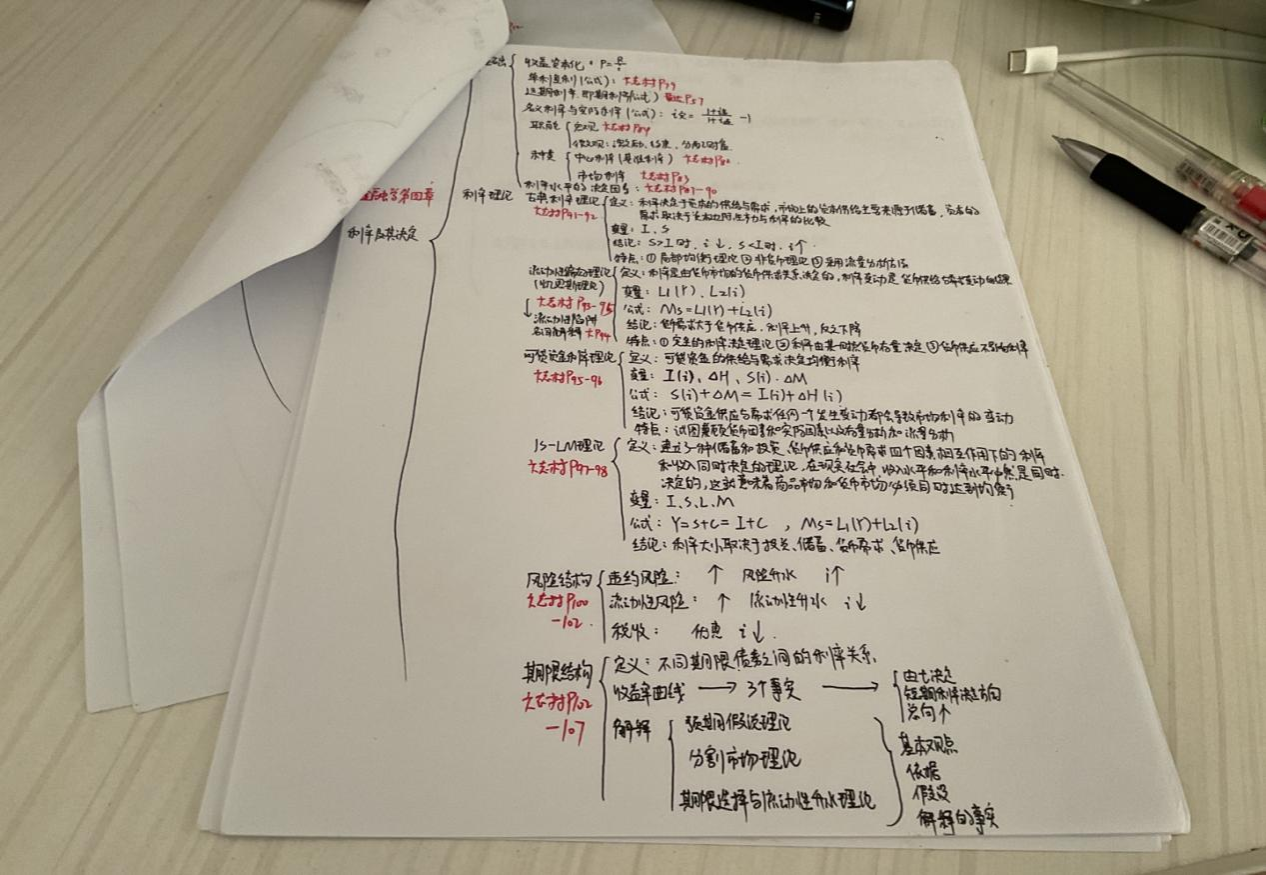 收益资本化：P=B/r
单利复利(公式)：大志材P79
远期利率、即期利率(公式) P57
名义利率与实际利率(公式)：
职能 宏观 大志材P84
种类 中心利率(基准利率) 大志材
市场利率 大志材P83
利率水平的决定因素：大志材P87-90
金融学第四章
利率及其决定
利率理论
古典利率理论 大志材P91-92
定义：利率决定于资本的供给与需求，市场上的资本供给主要来源于储蓄，资本的
需求取决于资本边际生产力与利率的比较
变量：I、S
结论：S>I时，i↓，S<I时，i↑.
特点：①局部均衡理论②非货币理论③采用流量分析方法
流动性偏好理论
(凯恩斯理论)
大志材P93-95
↓流动性陷阱
名词解释 大P94
定义：利率是由货币市场的货币供求关系决定的，利率变动是货币供给与需求变动的结果
变量：L1(Y)、L2(i)
公式：Ms=L1(Y)+L2(i)
结论：货币需求大于货币供应，利率上升，反之下降
特点：①完全的利率决定理论②利率由某一时点货币存量决定③货币供应不影响利率
可贷资金利率理论
大志材P95-96
定义：可贷资金的供给与需求决定均衡利率
变量：I(i)、ΔH、S(i)、ΔM
公式：S(i)+ΔM=I(i)+ΔH(i)
结论：可贷资金供应与需求任何一个发生变动都会导致市场利率的变动
特点：试图兼顾货币因素和实际因素以及存量分析和流量分析
IS-LM理论
大志材P97-98
定义：建立了一种储蓄和投资、货币供应和货币需求四个因素相互作用下的利率
和收入同时决定的理论，在现实社会中，收入水平和利率水平必然是同时
决定的，这就意味着商品市场和货币市场必须同时达到均衡
变量：I、S、L、M
公式：Y=S+C=I+C ，Ms=L1(Y)+L2(i)
结论：利率大小取决于投资、储蓄、货币需求、货币供应
风险结构
大志材P100
-102.
违约风险：↑ 风险升水 i↑
流动性风险：↑ 流动性升水 i↓
税收：优惠 i↓.
期限结构
大志材P102
-107
定义：不同期限债券之间的利率关系.
收益率曲线 → 3个事实 →
由七决定
短期利率决定方向
总向↑
解释
预期假说理论
分割市场理论
期限选择与流动性升水理论
基本观点
依据
假设
解释的事实